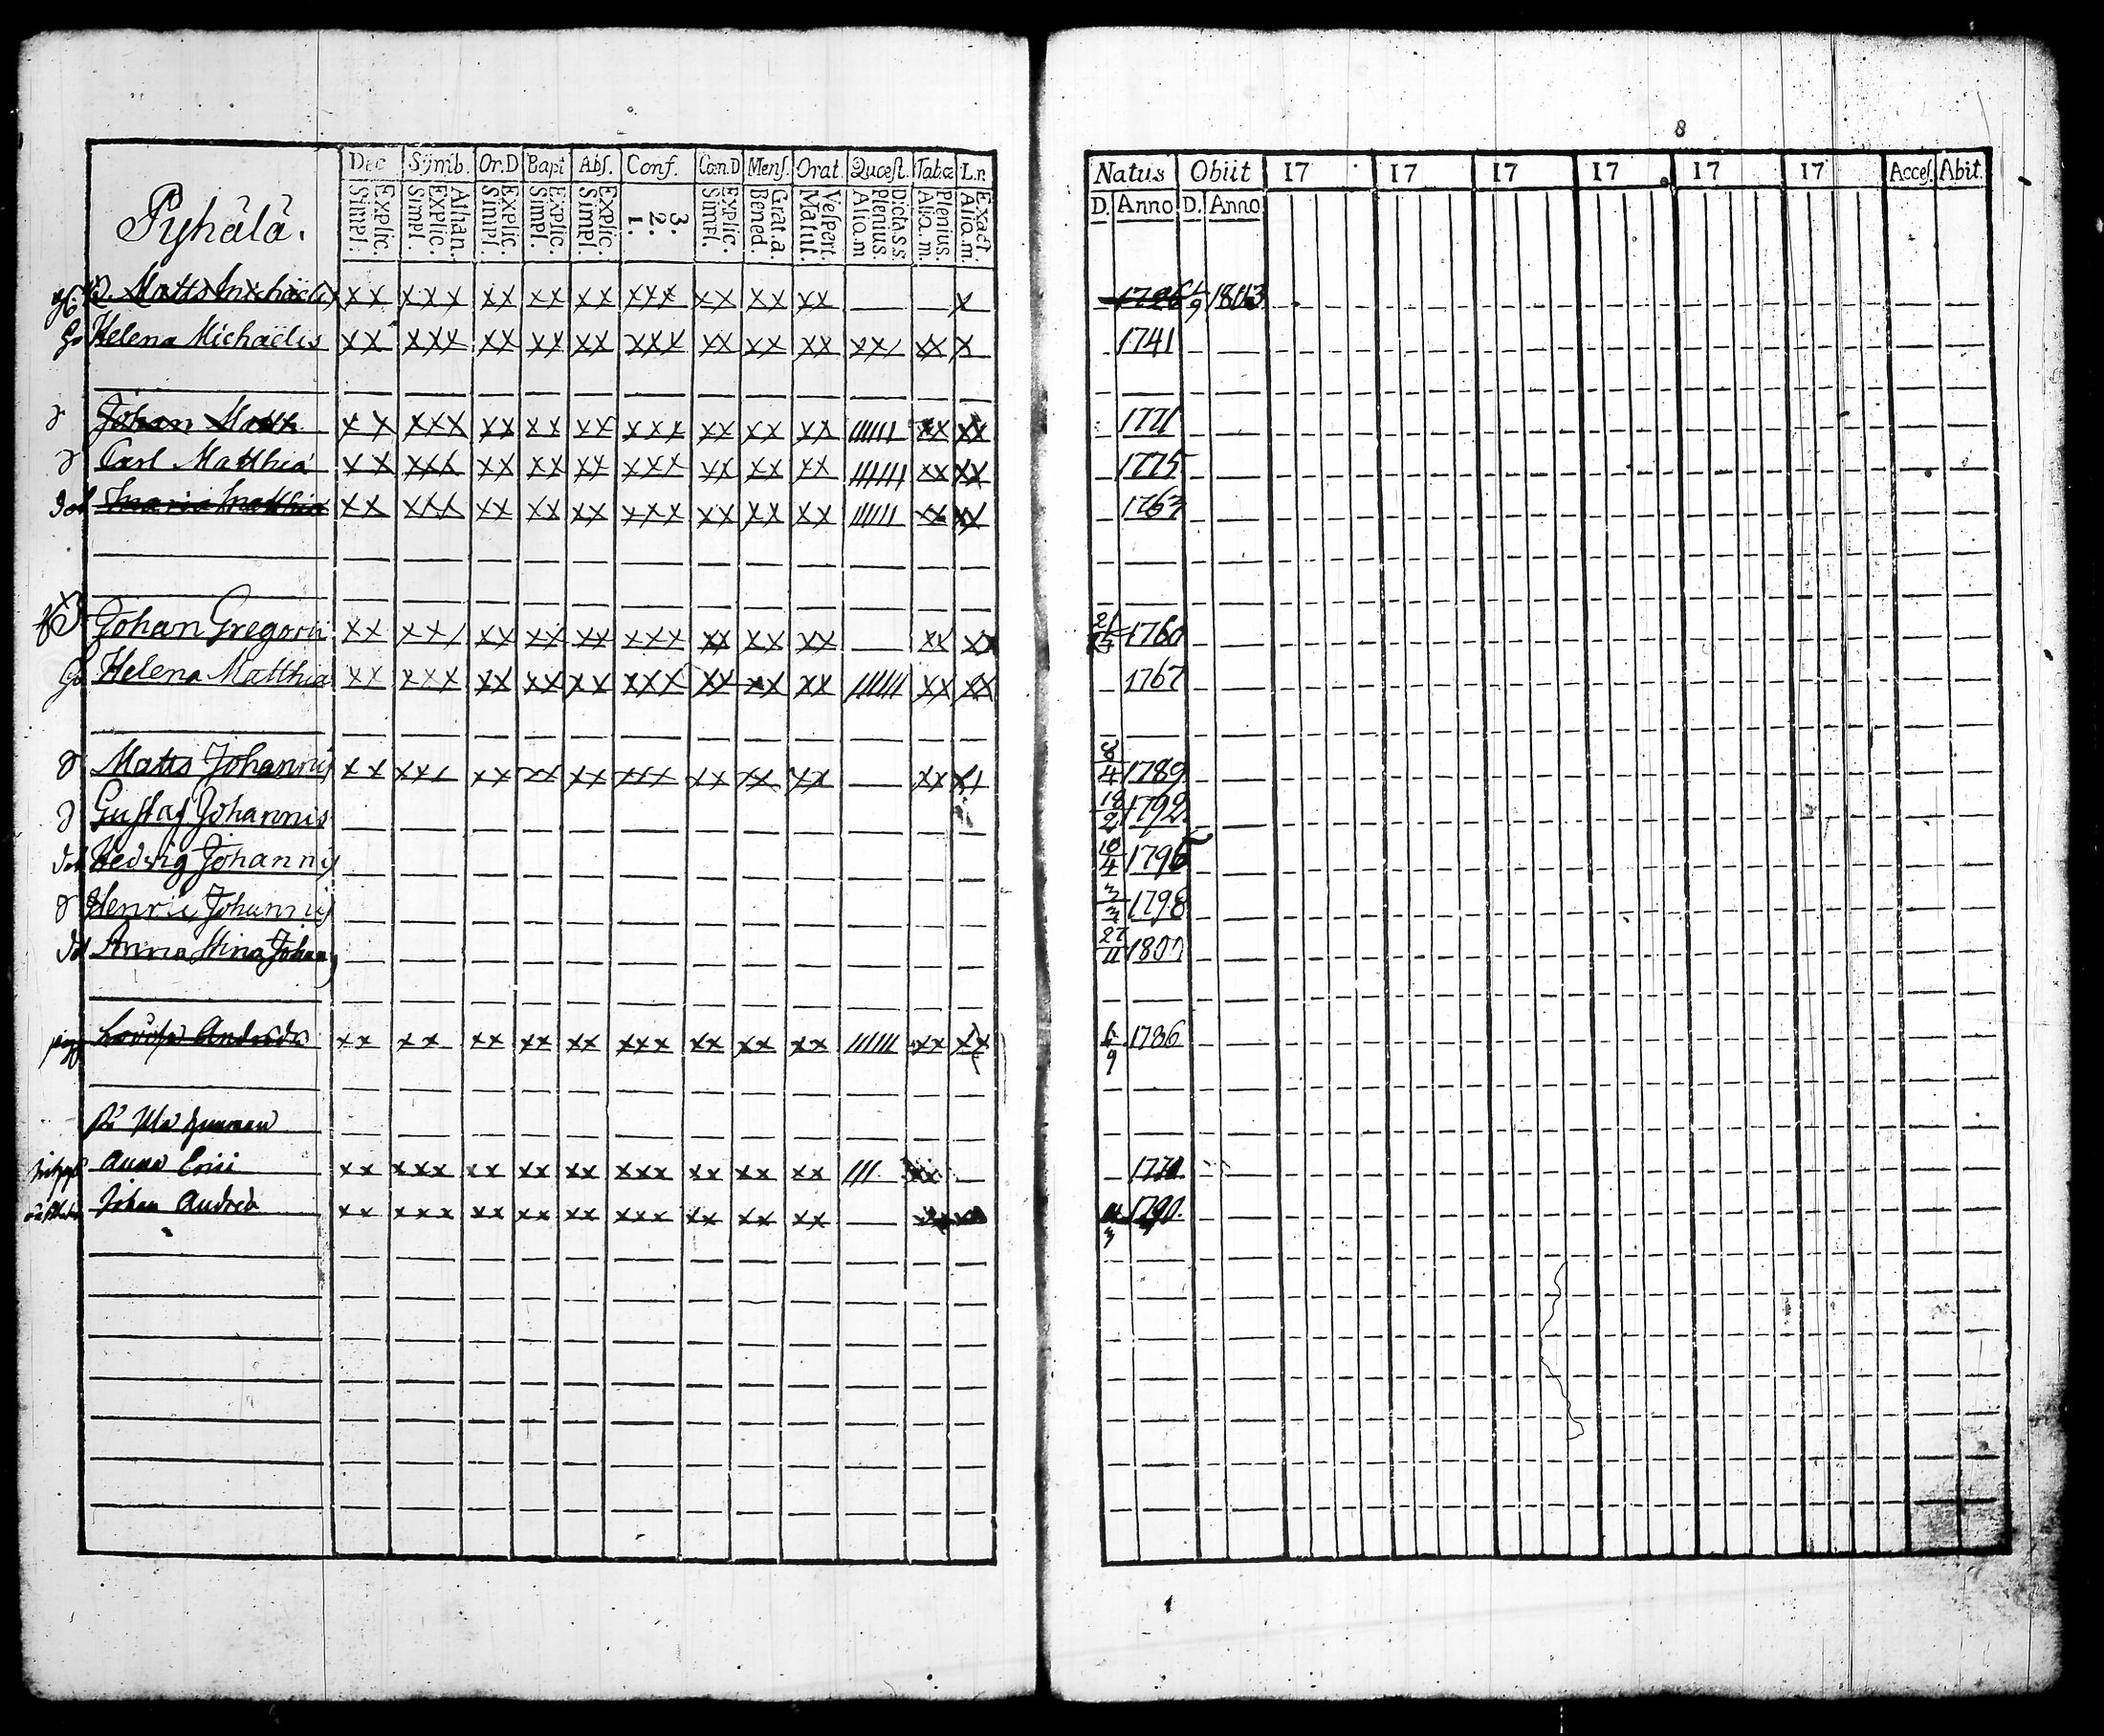 8
Pyhälä.
Dec Symb. Or.D Bapt Abs. Conf. Cœn.D Mens. Orat. Quæst. Tabcæ L.n.
Explic. Simpl. Athan. Explic. Simpl. Explic. Simpl. Explic. Simpl. Explic. Simpl. 3. 2. 1. Explic. Simpl. Grat. a. Bened. Vespert. Matut. Dictas s Plenius. Aliq. m Plenius. Aliq. m Exact. Aliq. m.
Natus Obiit 17 17 17 17 17 17 Acces. Abit.
D. Anno D. Anno
Matts Michaelis xx xxx xx xx xx xxx xx xx xx x 1726 1803
Helena Michaëlis xx xxx xx xx xx xxx xx xx xx xxx xx x 1741
Johan Matth xx xxx xx xx xx xxx xx xx xx xx xx 1771
Carl Matthiä xx xxx xx xx xx xxx xx xx xx xx xx 1775
Maria Matthiä xx xxx xx xx xx xxx xx xx xx xx xx 1763
Johan Gregorii xx xxx xx xx xx xxx xx xx xx xx xx 1760
Helena Matthiä xx xxx xx xx xx xxx xx xx xx xx xx 1767
Matts Johannis xx xxx xx xx xx xxx xx xx xx xx xx 8/4 1789
Gustaf Johannis 18/2 1792
Hedvig Johannis 10/4 1795
Henric Johannis 3/3 1798
Anna Stina Johan 27/11 1800
Lovisa Andreæ xx xx xx xx xx xxx xx xx xx xx xx 1786
Anna Erici xx xxx xx xx xx xxx xx xx xx xx
Johan Andreæ xx xxx xx xx xx xxx xx xx xx 1790